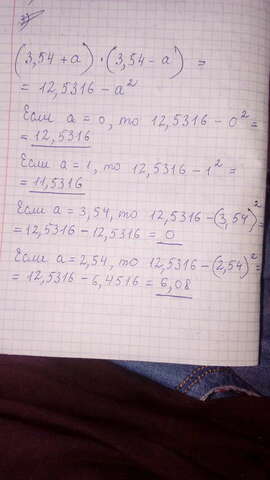 (3,54 + a) · (3,54 - a) =
= 12,5316 - a²
Если a = 0, то 12,5316 - 0² =
= 12,5316
Если a = 1, то 12,5316 - 1² =
= 11,5316
Если a = 3,54, то 12,5316 - (3,54)² =
= 12,5316 - 12,5316 = 0
Если a = 2,54, то 12,5316 - (2,54)² =
= 12,5316 - 6,4516 = 6,08